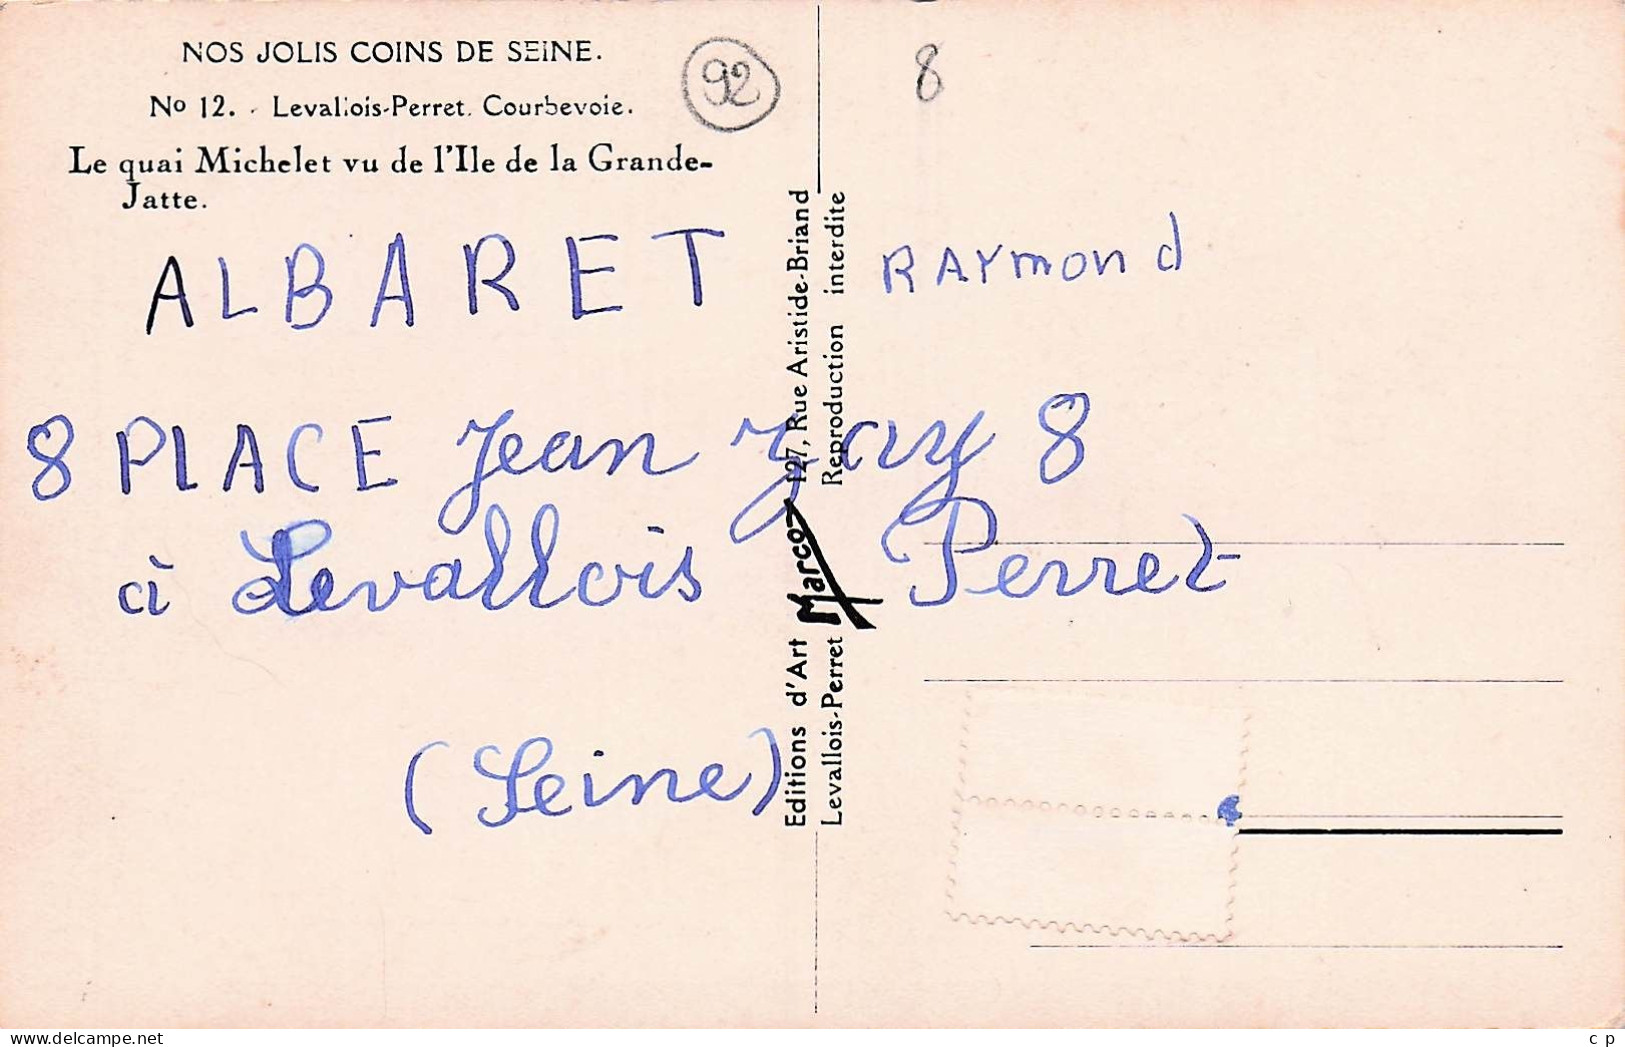 NOS JOLIS COINS DE SEINE.
No 12. - Levallois-Perret. Courbevoie.
Le quai Michelet vu de l'Ile de la Grande-
Jatte.
92
8
ALBARET RAYmond
8 PLACE Jean Zay 8
à Levallois Perret
(Seine)
Editions d'Art Marco 127, Rue Aristide-Briand
Levallois-Perret Reproduction interdite
www.delcampe.net
c p